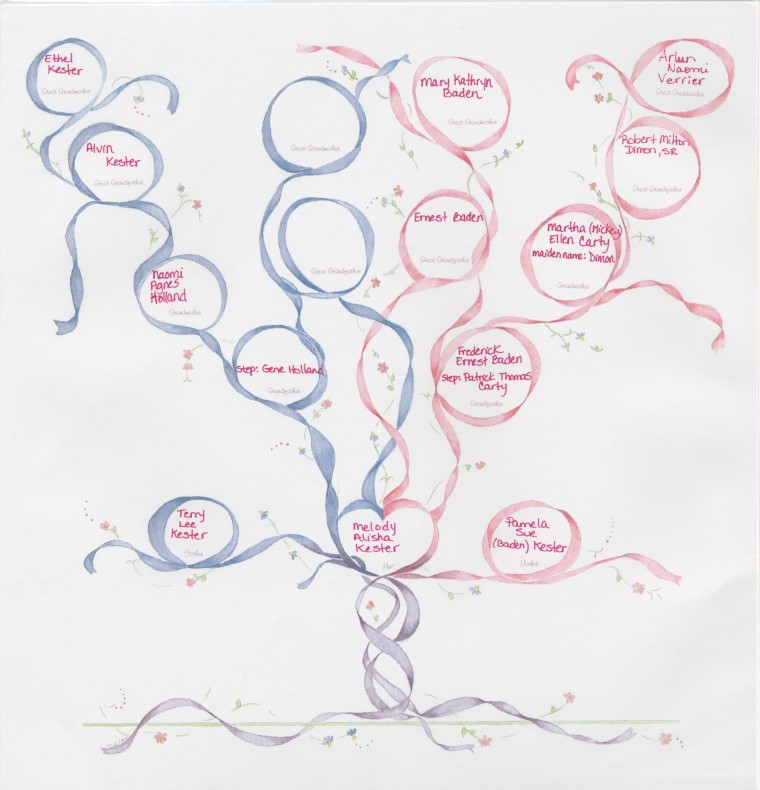 Ethel
Kester
Great Grandmother
Alvin
Kester
Great Grandfather
Naomi
Agnes
Holland
Grandmother
Great Grandmother
Great Grandfather
Step: Gene Holland
Grandfather
Mary Kathryn
Baden
Great Grandmother
Ernest Baden
Great Grandfather
Naomi
Verrier
Great Grandmother
Robert Milton
Dimon, SR
Great Grandfather
Martha (Mickey)
Ellen Carty
maiden name: Dimon
Grandmother
Frederick
Ernest Baden
Step: Patrick Thomas
Carty
Grandfather
Terry
Lee
Kester
Father
Melody
Alisha
Kester
Me
Pamela
Sue
(Baden) Kester
Mother